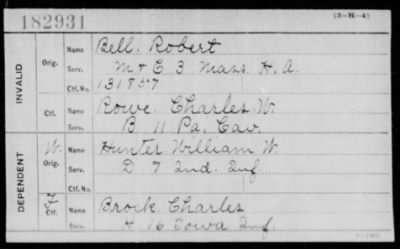 182931
(3-M-4)
INVALID
Orig. Name Bell, Robert
Serv. M & E 3 Mass. H. A.
Ctf. No. 131857
Ctf. Name Rowe, Charles W.
Serv. B 11 Pa. Cav.
DEPENDENT
W. Orig. Name Hunter William W.
Serv. D 7 Ind. Inf
Ctf. No.
Ctf. Name Brock, Charles
Serv. H 16 Iowa Inf.